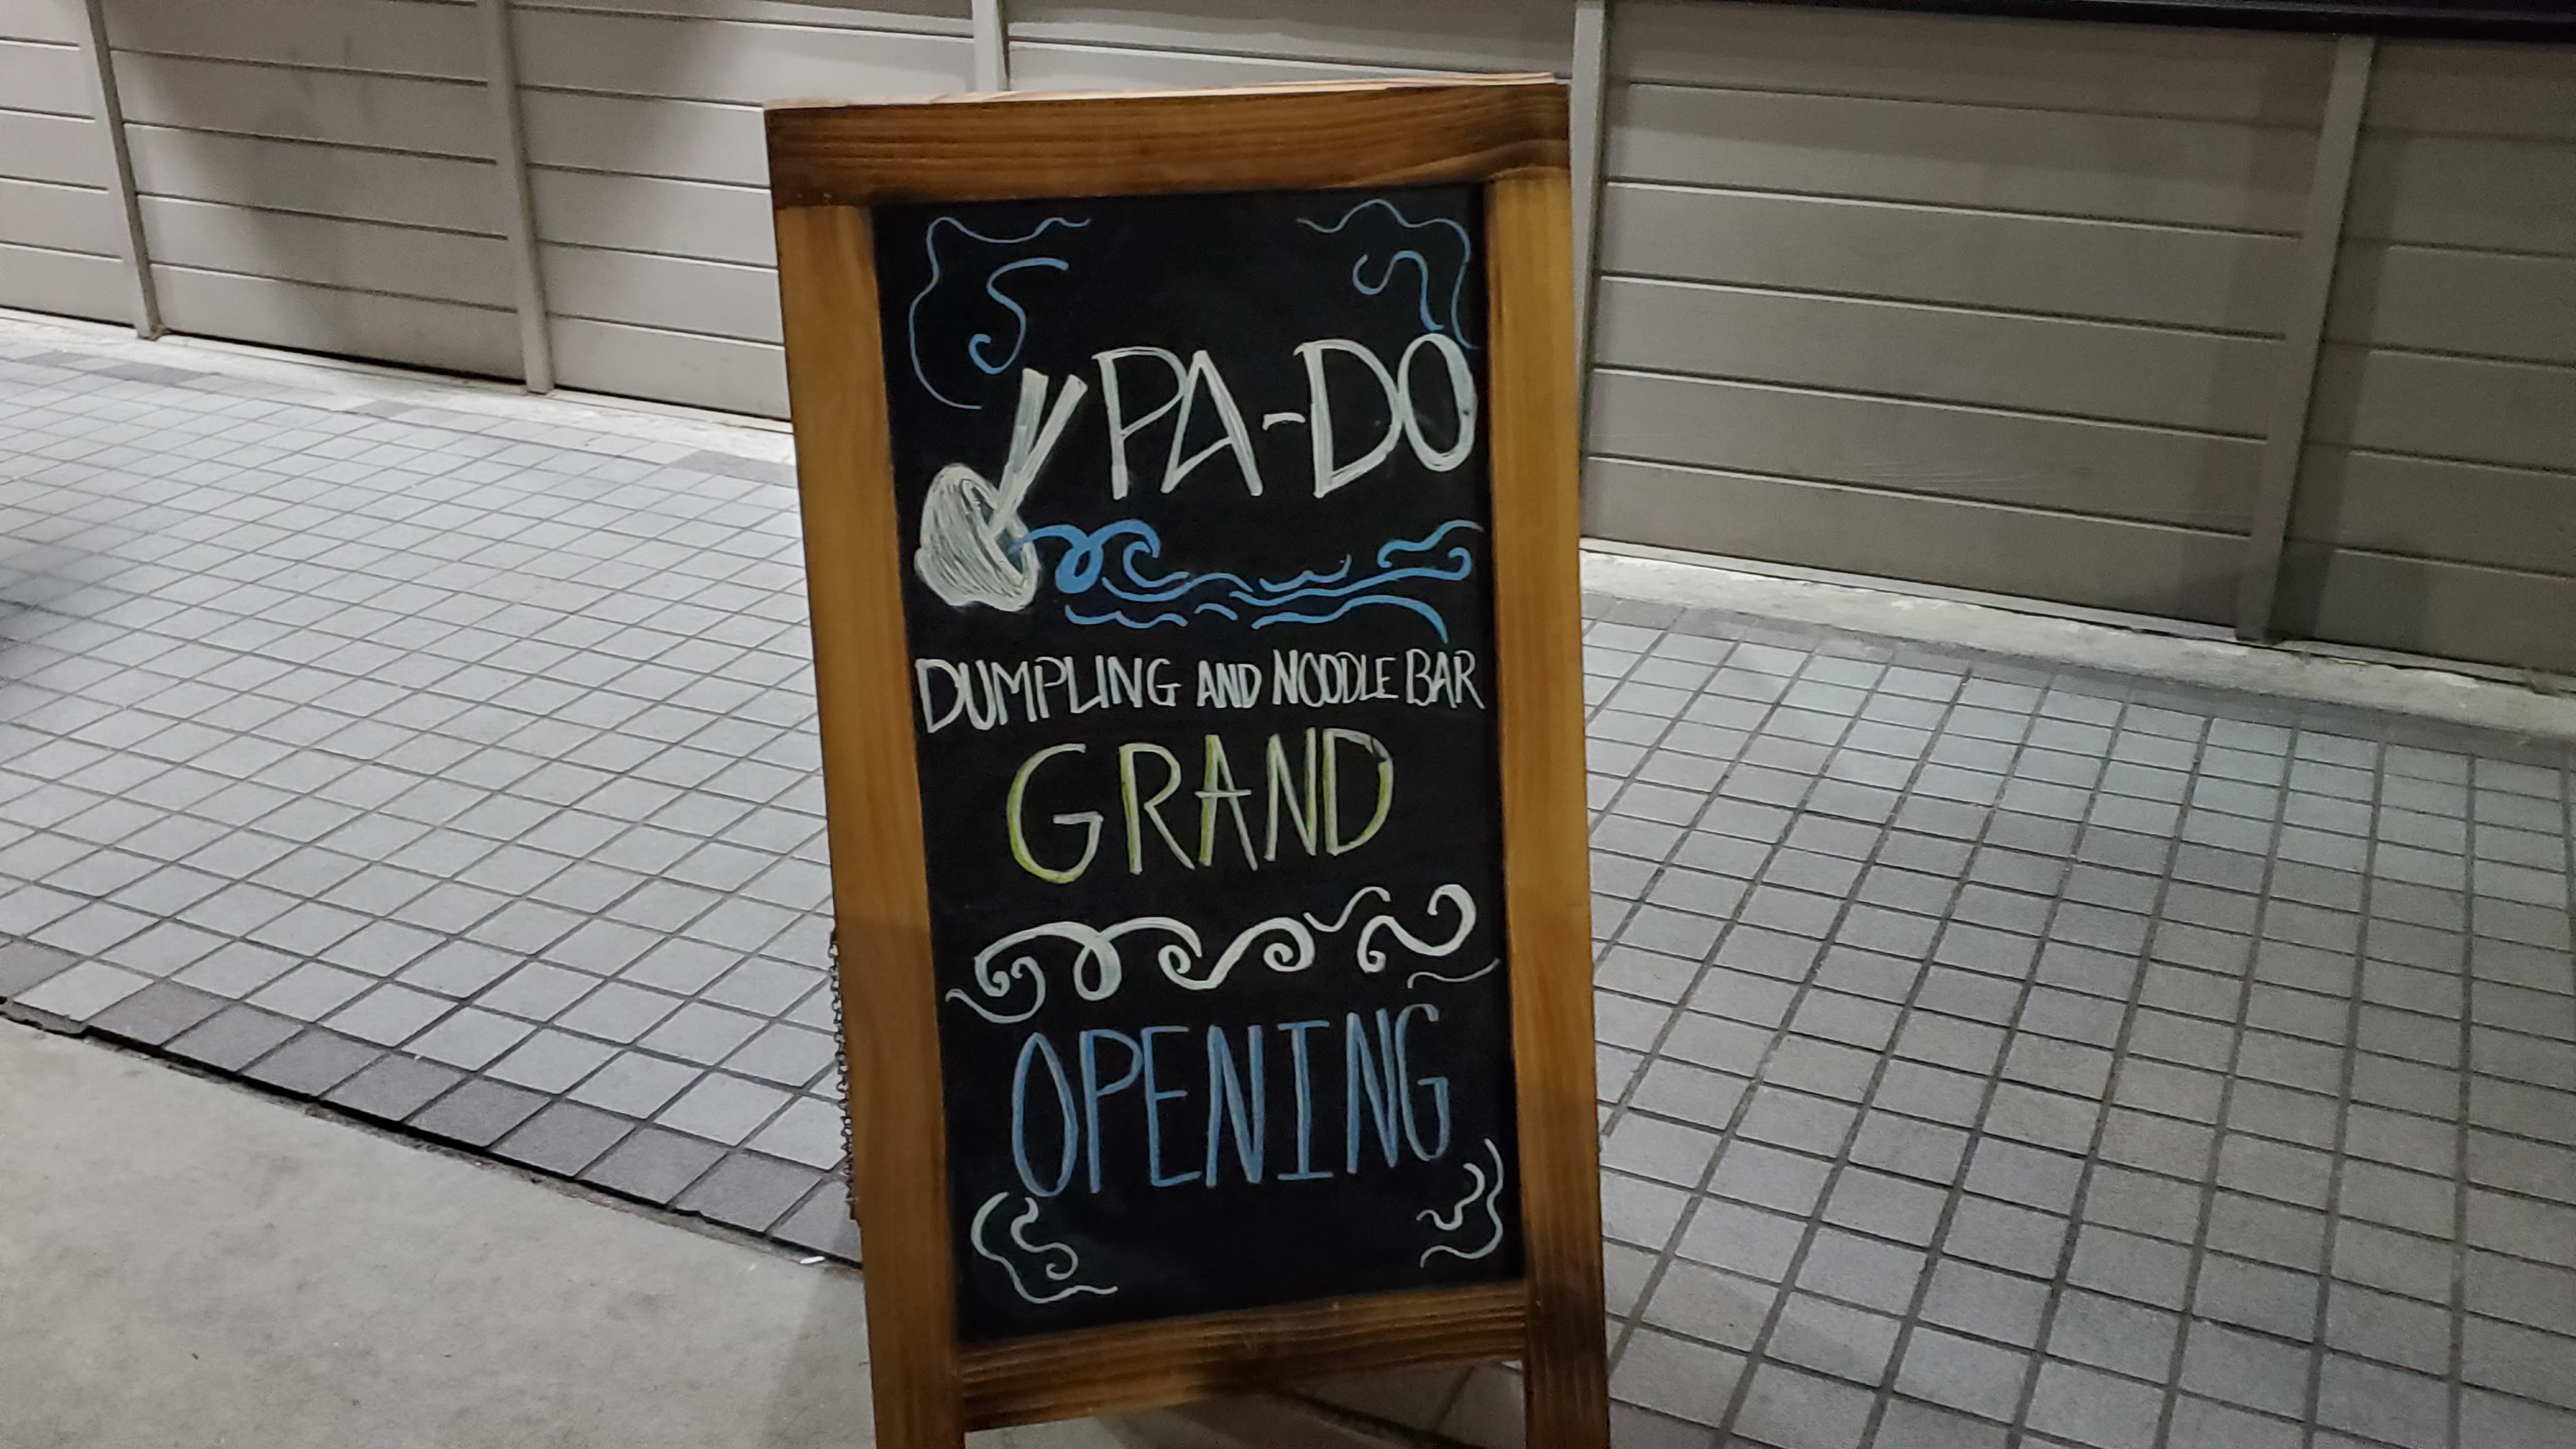 PA-DO
DUMPLING AND NOODLE BAR
GRAND
OPENING